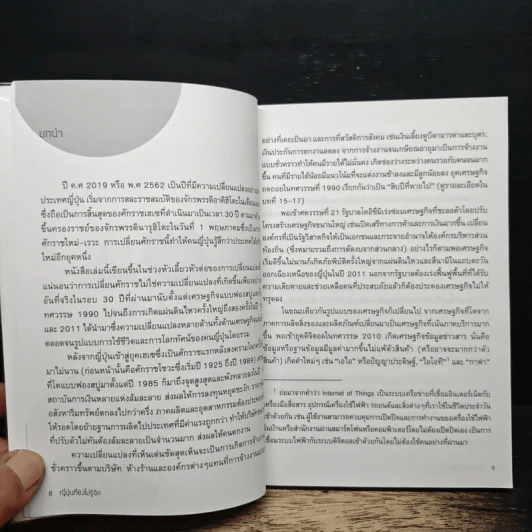 บทนำ
ปี ค.ศ 2019 หรือ พ.ศ 2562 เป็นปีที่มีความเปลี่ยนแปลง
ประเทศญี่ปุ่น เริ่มจากการสละราชสมบัติของจักรพรรดิอากิฮิโตะใน
ซึ่งถือเป็นการสิ้นสุดของศักราชเฮเซที่ดำเนินมาเป็นเวลา 30 ปี ตามมาด้วย
ขึ้นครองราชย์ของจักรพรรดินารุฮิโตะในวันที่ 1 พฤษภาคมซึ่งเป็น
ศักราชใหม่-เรวะ การเปลี่ยนศักราชนี้ทำให้คนญี่ปุ่นรู้สึกว่าประเทศได้
ใหม่อีกยุคหนึ่ง
หนังสือเล่มนี้เขียนขึ้นในช่วงหัวเลี้ยวหัวต่อของการเปลี่ยน
แน่นอนว่าการเปลี่ยนศักราชไม่ใช่ความเปลี่ยนแปลงที่เกิดขึ้นเพียง
อันที่จริงในรอบ 30 ปีที่ผ่านมานับตั้งแต่เศรษฐกิจแบบฟองสบู่
ทศวรรษ 1990 ไปจนถึงการเกิดแผ่นดินไหวครั้งใหญ่ถึงสองครั้งในปี
และ 2011 ได้นำมาซึ่งความเปลี่ยนแปลงหลายด้านทั้งด้านเศรษฐกิจ
ตลอดจนรูปแบบการใช้ชีวิตและการโลกทัศน์ของคนญี่ปุ่นโดยรวม
หลังจากญี่ปุ่นเข้าสู่ยุคเฮเซซึ่งเป็นศักราชแรกหลังสงครามโลก
มาไม่นาน (ก่อนหน้านั้นคือศักราชโชวะซึ่งเริ่มปี 1925 ถึงปี 1989)
ที่โตแบบฟองสบู่มาตั้งแต่ปี 1985 ก็มาถึงจุดสูงสุดและพังทลายลงในปี
สถาบันการเงินหลายแห่งล้มละลาย ส่งผลให้การลงทุนหยุดชะงัก ราคา
อสังหาริมทรัพย์ตกลงไปกว่าครึ่ง ภาคผลิตและอุตสาหกรรมต้องปรับตัว
ให้รอดโดยย้ายฐานการผลิตไปประเทศที่มีค่าแรงถูกกว่า บริษัท
ที่ปรับตัวไม่ทันต้องล้มละลายเป็นจำนวนมาก ส่งผลให้คนตกงาน
ความเปลี่ยนแปลงที่เห็นเด่นชัดสุดเห็นจะเป็นการเกิดการจ้างงาน
ชั่วคราวขึ้นตามบริษัท ห้างร้านและองค์กรต่างๆแทนที่การจ้างงาน
8 ญี่ปุ่นที่ยังไม่รู้จัก
อย่างที่เคยเป็นมา และการที่สวัสดิการสังคม เช่นเงินเลี้ยงดูบิดามารดาและบุตร,
เงินประกันการตกงานลดลง จากการจ้างงานจนเกษียณอายุมาเป็นการจ้างงาน
แบบชั่วคราวทำให้คนมีรายได้ไม่มั่นคง เกิดช่องว่างระหว่างคนรวยกับคนจนมาก
ขึ้น คนที่มีรายได้น้อยมีแนวโน้มที่จะแต่งงานช้าลงและมีลูกน้อยลง ยุคเศรษฐกิจ
ถดถอยในทศวรรษที่ 1990 เรียกกันว่าเป็น “สิบปีที่หายไป” (ดูรายละเอียดใน
บทที่ 15-17)
พอเข้าศตวรรษที่ 21 รัฐบาลโคอิซึมิเร่งซ่อมเศรษฐกิจที่ชะลอตัวโดยปรับ
โครงสร้างเศรษฐกิจขนานใหญ่ เช่นเปิดเสรีทางการค้าและการเงินมากขึ้น เปลี่ยน
องค์กรที่เป็นรัฐวิสาหกิจให้เป็นเอกชนและกระจายอำนาจให้องค์กรบริหารส่วน
ท้องถิ่น (ซึ่งหมายรวมถึงการตัดงบจากส่วนกลาง) อย่างไรก็ตามพอเศรษฐกิจ
เริ่มดีขึ้นไม่นานก็เกิดภัยพิบัติครั้งใหญ่จากแผ่นดินไหวและสึนามิในแถบตะวัน
ออกเฉียงเหนือของญี่ปุ่นในปี 2011 นอกจากรัฐบาลต้องเร่งฟื้นฟูพื้นที่ที่ได้รับ
ความเสียหายและช่วยเหลือคนที่ประสบภัยแล้วก็ต้องประคองเศรษฐกิจไม่ให้
ทรุดลง
ในขณะเดียวกันรูปแบบของเศรษฐกิจเปลี่ยนไป จากเศรษฐกิจที่โตจาก
ภาคการผลิตสิ่งของและผลิตภัณฑ์เปลี่ยนมาเป็นเศรษฐกิจที่เน้นภาคบริการมาก
ขึ้น พอเข้ายุคดิจิตอลในทศวรรษ 2010 เกิดเศรษฐกิจข้อมูลข่าวสาร นั่นคือ
ข้อมูลหรือฐานข้อมูลมีมูลค่ามากขึ้นไม่แพ้ตัวสินค้า (หรืออาจจะมากกว่าตัว
สินค้า) เกิดคำใหม่ๆ เช่น “เอไอ” หรือปัญญาประดิษฐ์, “ไอโอที¹” และ “กาฟา”
¹ ย่อมาจากคำว่า Internet of Things เป็นระบบเครือข่ายที่เชื่อมอินเตอร์เน็ตกับ
เครื่องมือสื่อสาร อุปกรณ์เครื่องใช้ไฟฟ้า รถยนต์และสิ่งต่างๆที่เราใช้ในชีวิตประจำวัน
เข้าด้วยกัน เช่น ผู้ใช้งานสามารถควบคุมการเปิดปิดและการทำงานของเครื่องใช้ไฟฟ้า
ในบ้านหรือสำนักงานผ่านสมาร์ตโฟนหรือคอมพิวเตอร์โดยไม่ต้องเปิดปิดเอง เป็นการ
เชื่อมระบบไฟฟ้ากับระบบดิจิตอลเข้าด้วยกันโดยไม่ต้องใช้คนอย่างที่ผ่านมา
9